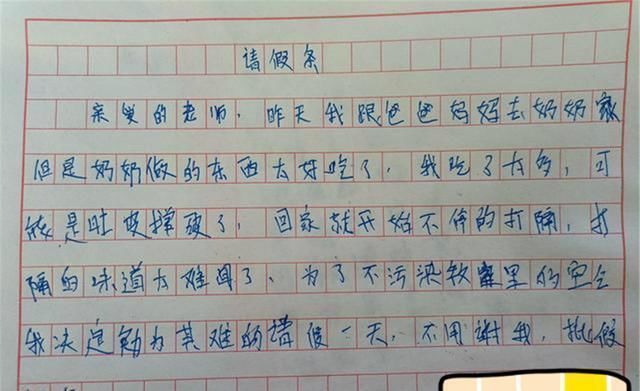 请假条
亲爱的老师,昨天我跟爸爸妈妈去奶奶家
但是奶奶做的东西太好吃了,我吃了太多,可
能是肚皮撑破了,回家就开始不停的打隔,打
隔的味道太难闻了,为了不污染教室里的空气
我决定勉为其难的请假一天,不用谢我,批假